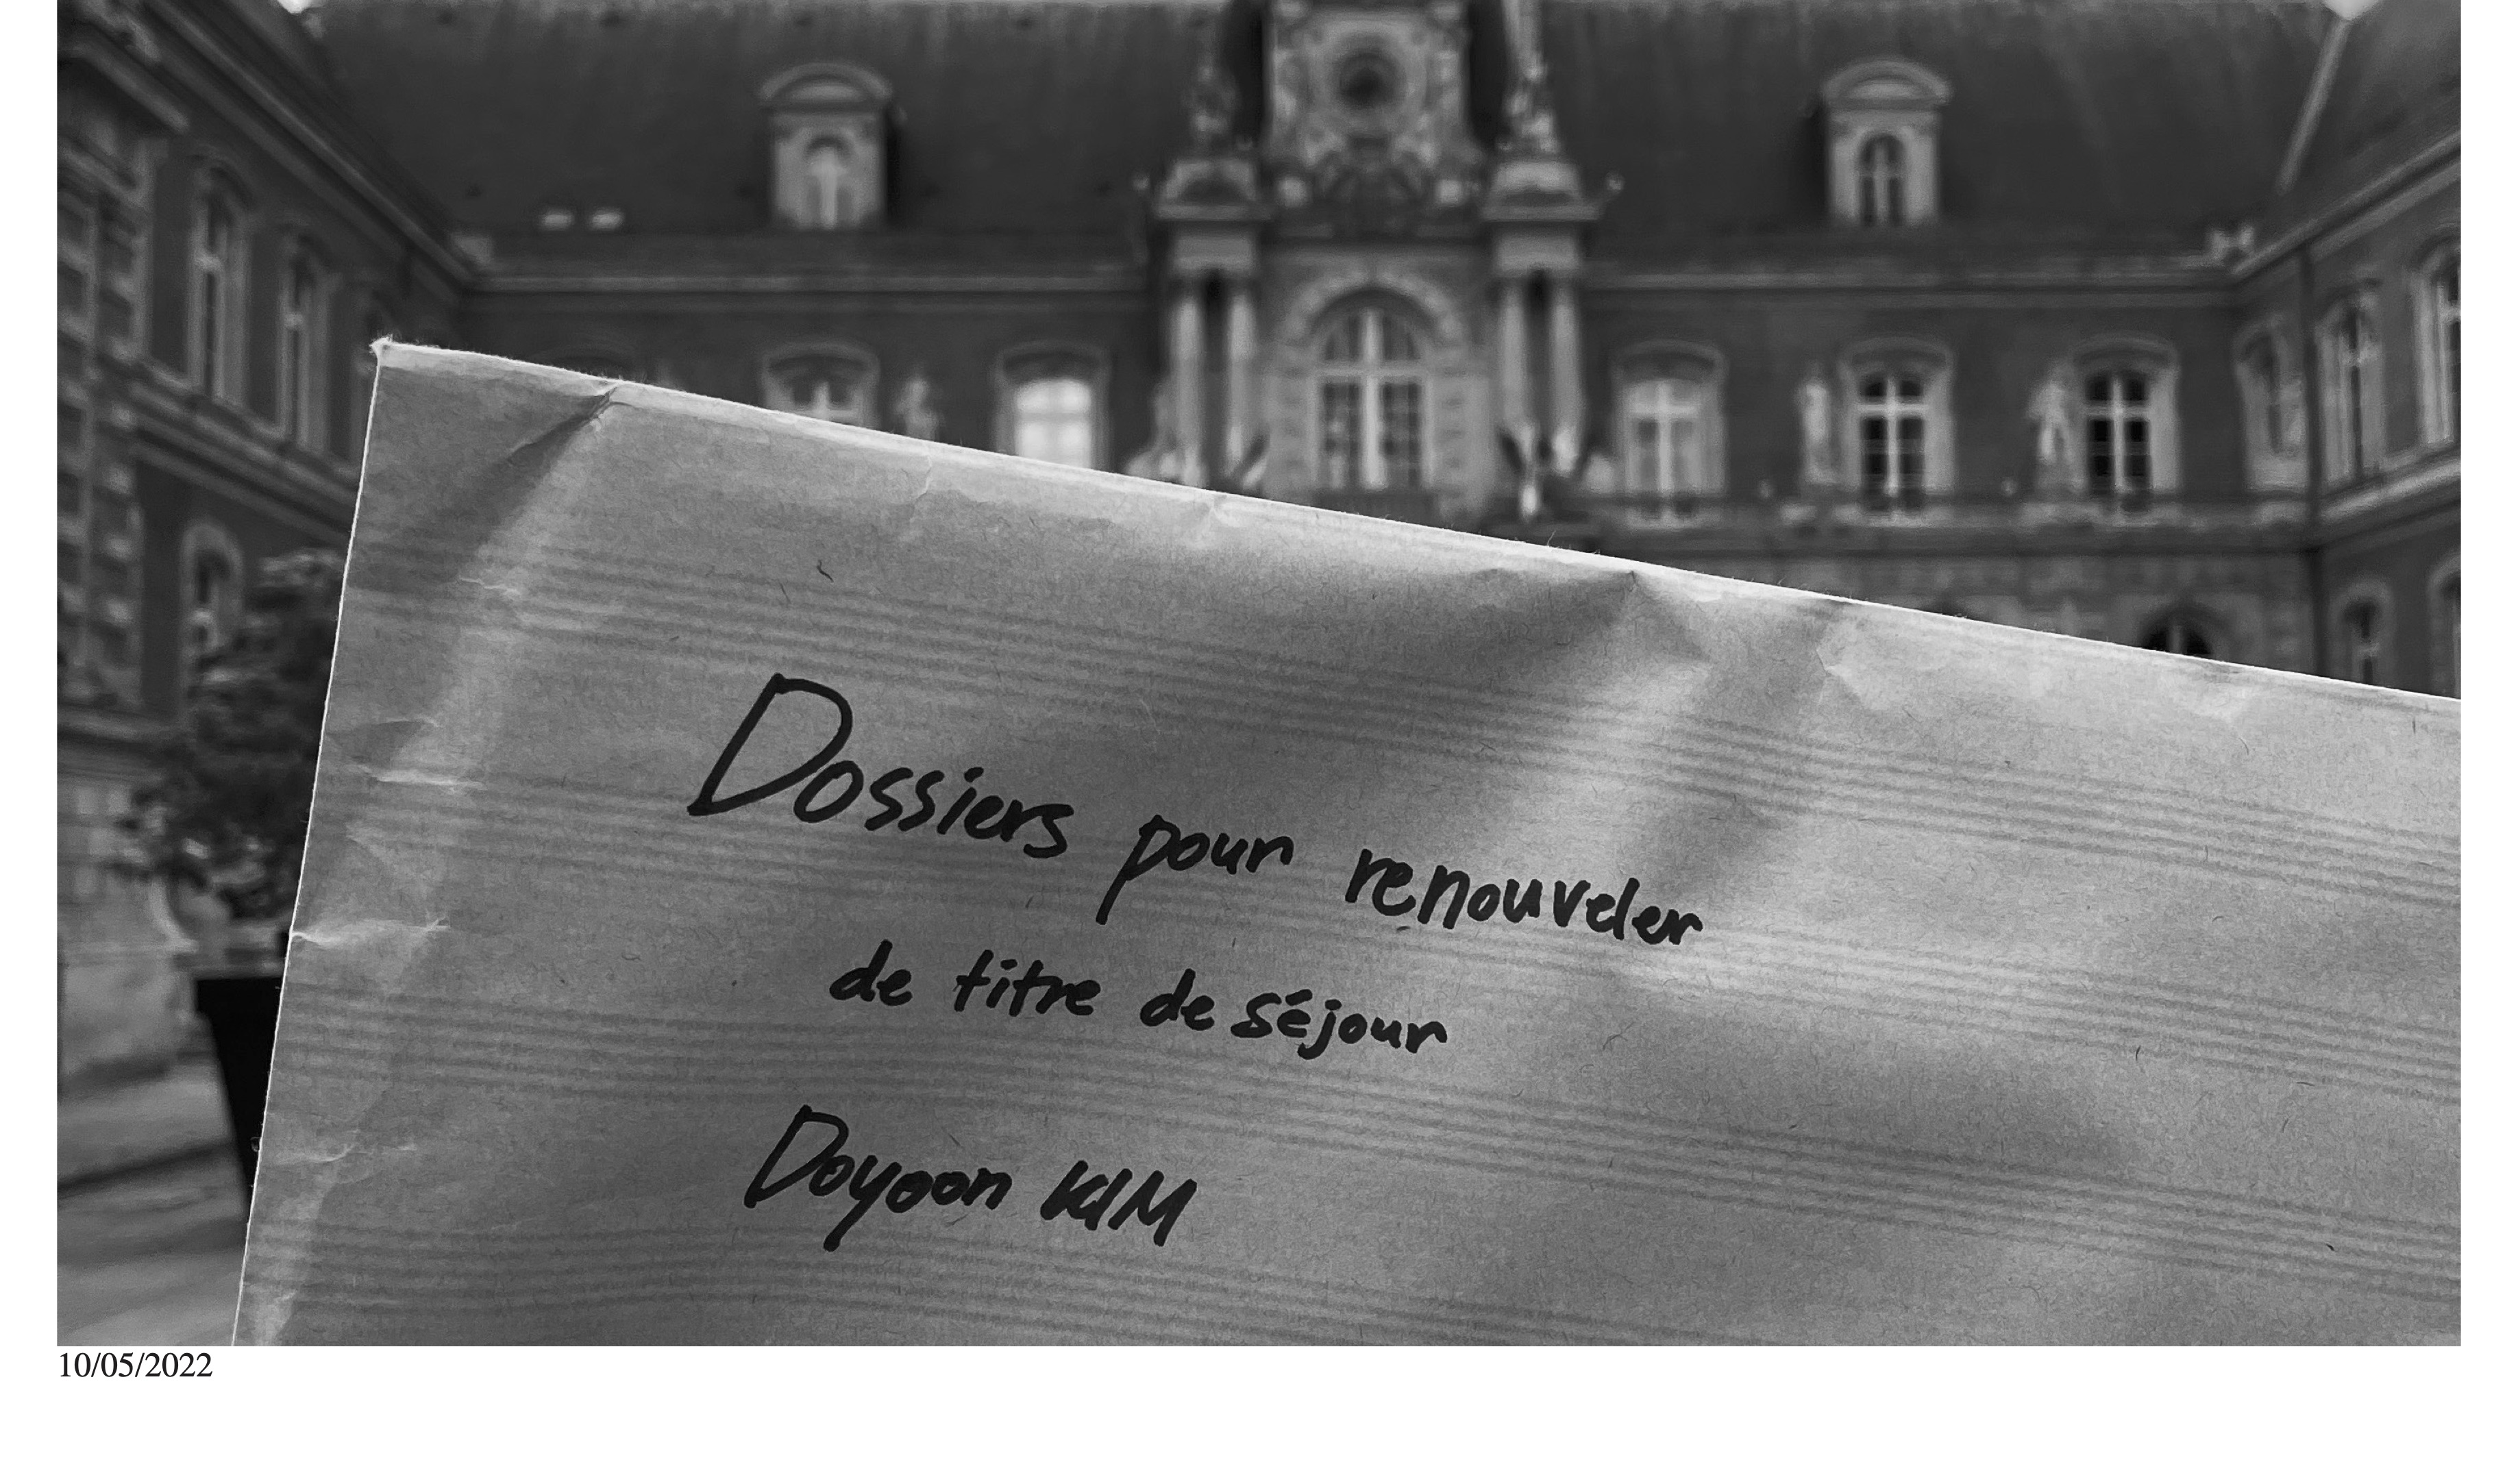 Dossiers pour renouveler
de titre de séjour
Doyoon KIM
10/05/2022